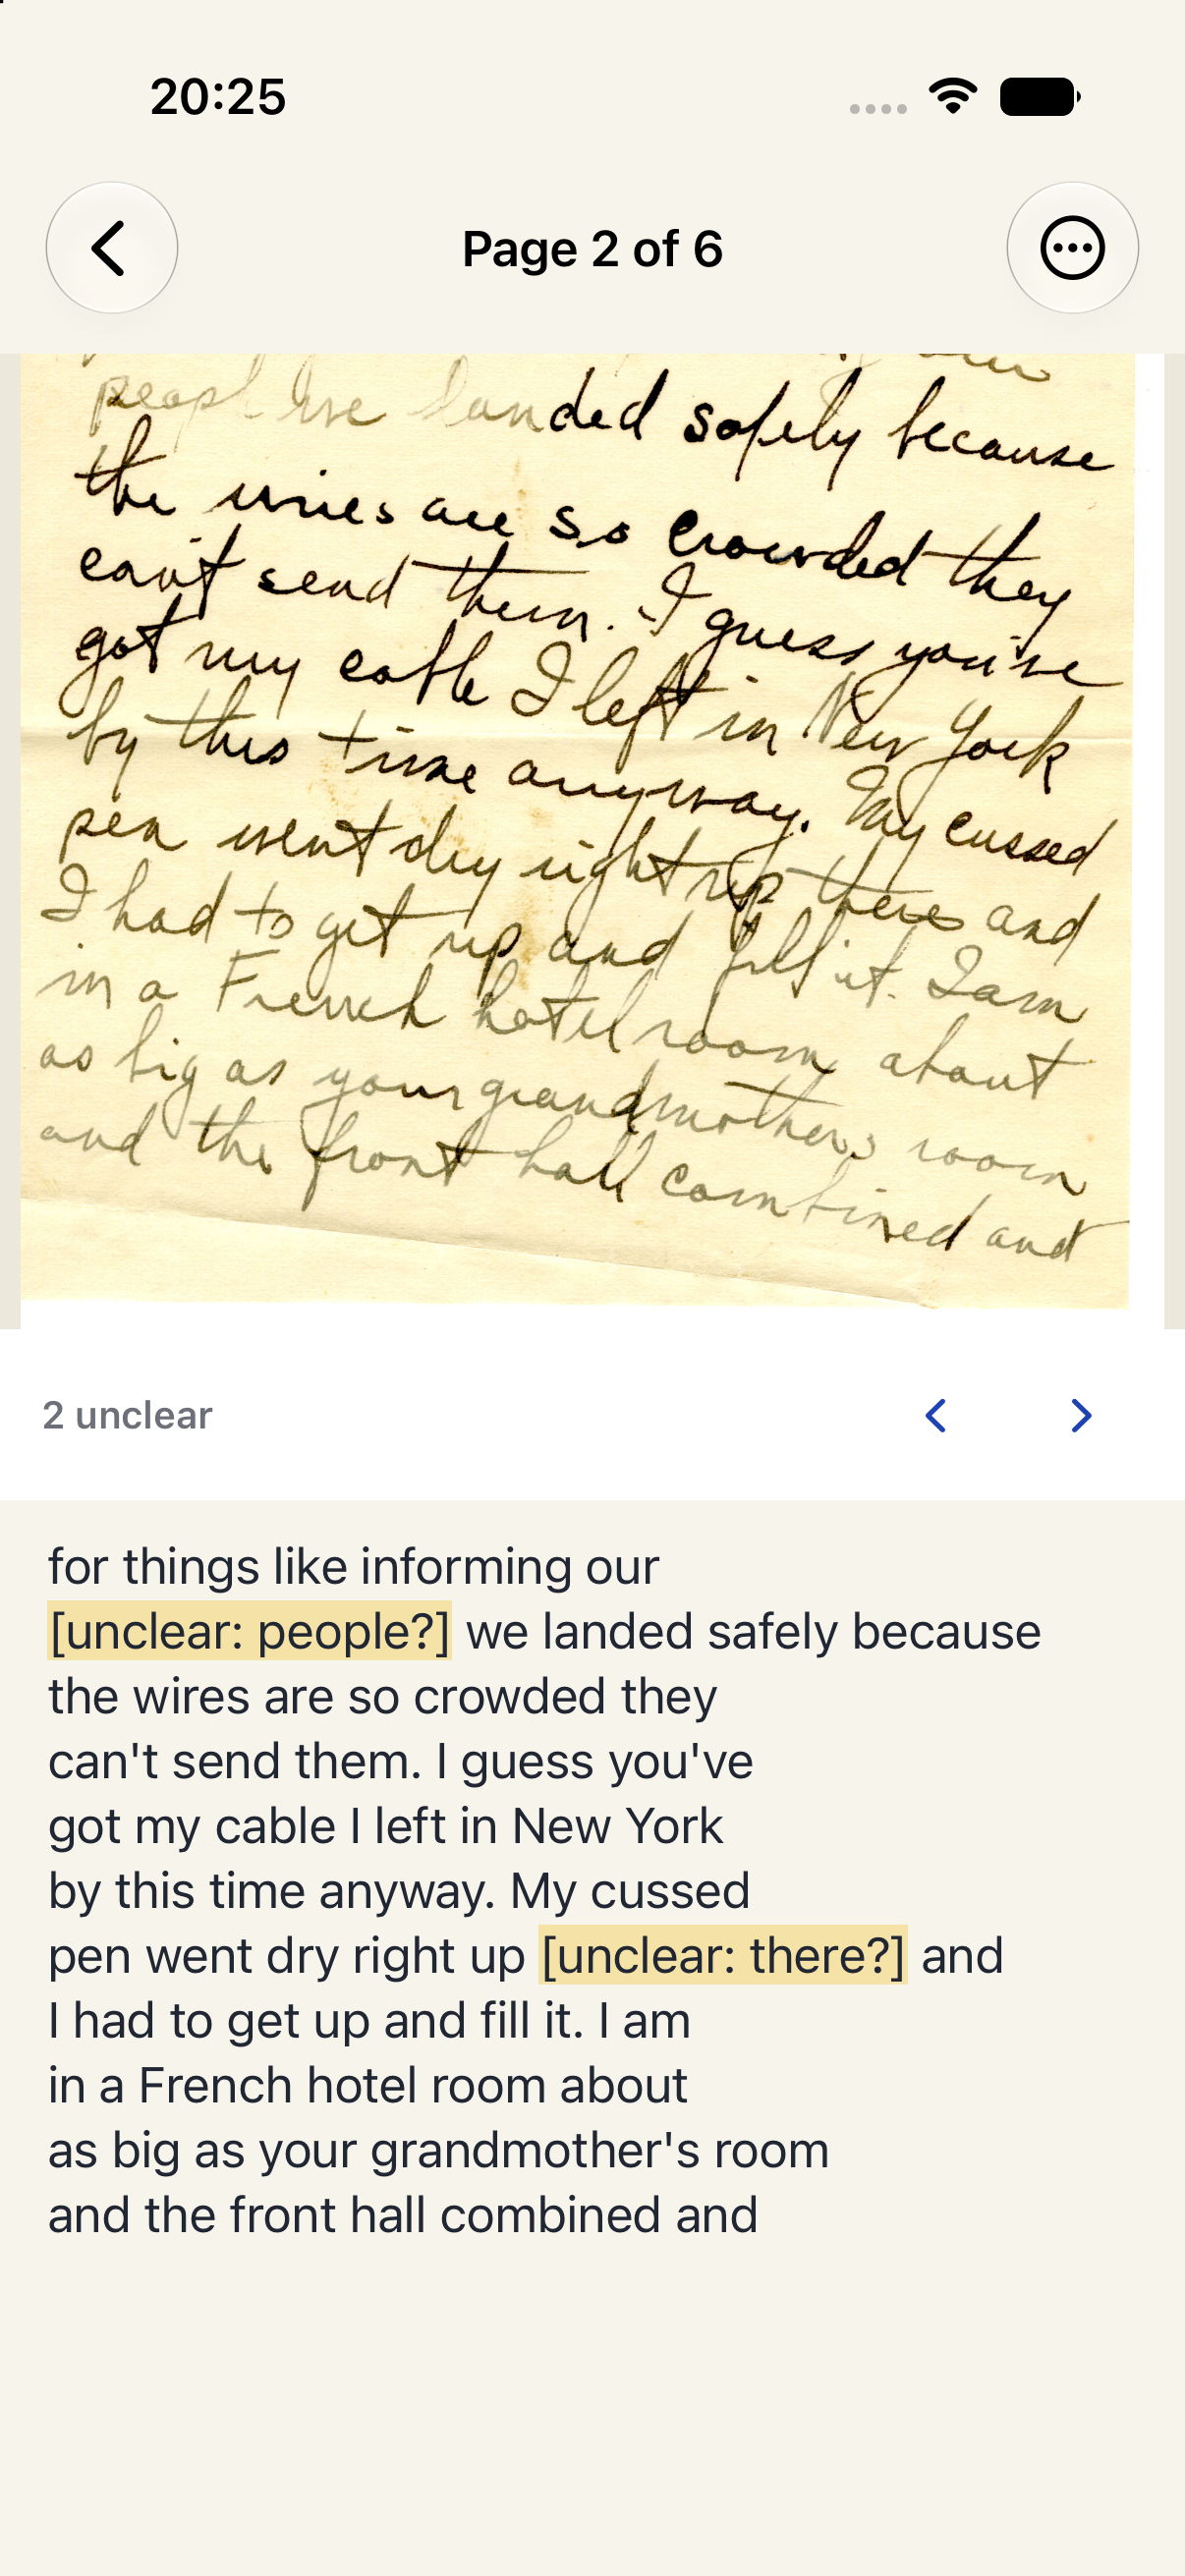 20:25
Page 2 of 6
people we landed safely because
the wires are so crowded they
can't send them. I guess you've
got my cable I left in New York
by this time anyway. My cussed
pen went dry right up there and
I had to get up and fill it. I am
in a French hotel room about
as big as your grandmothers room
and the front hall combined and
2 unclear
for things like informing our
[unclear: people?] we landed safely because
the wires are so crowded they
can't send them. I guess you've
got my cable I left in New York
by this time anyway. My cussed
pen went dry right up [unclear: there?] and
I had to get up and fill it. I am
in a French hotel room about
as big as your grandmother's room
and the front hall combined and